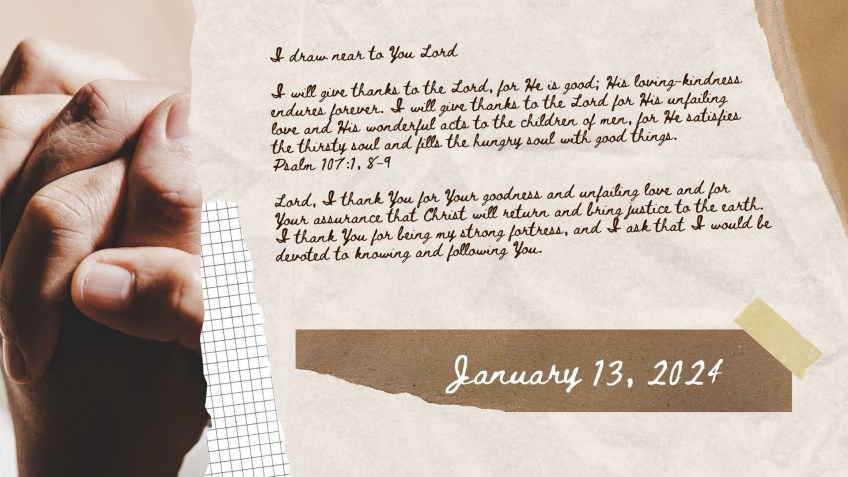 I draw near to You Lord
I will give thanks to the Lord, for He is good; His loving-kindness
endures forever. I will give thanks to the Lord for His unfailing
love and His wonderful acts to the children of men, for He satisfies
the thirsty soul and fills the hungry soul with good things.
Psalm 107:1, 8-9
Lord, I thank You for Your goodness and unfailing love and for
Your assurance that Christ will return and bring justice to the earth.
I thank You for being my strong fortress, and I ask that I would be
devoted to knowing and following You.
January 13, 2024